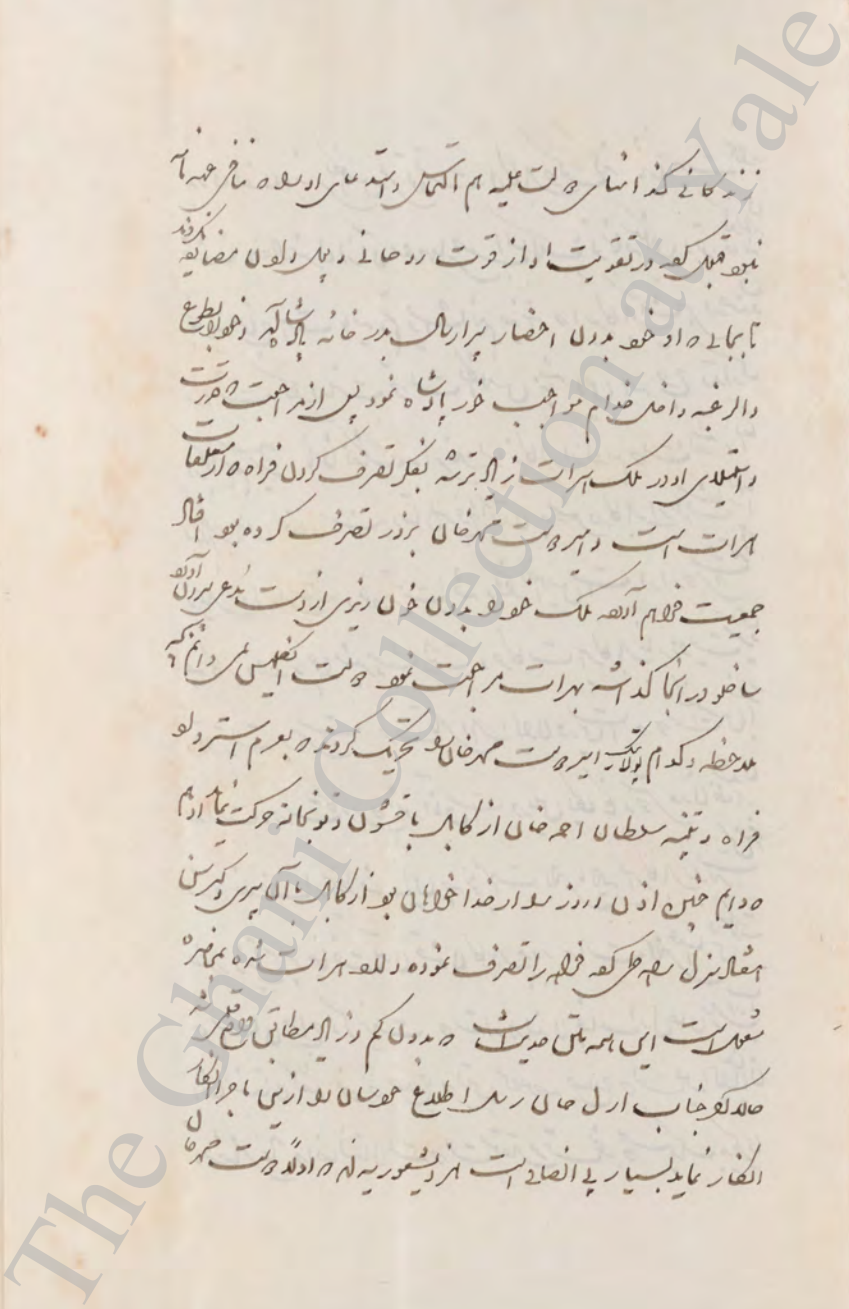 زندگانی کند اثنای دولت علیه هم التماس و استدعای او را که منافی عهدنامه
نبود قبول کرده در تقویت او از قوت روحانی و پول دادن مضایقه نکردند
تا بجائی که او خود بدون احضار بدربار خانه پادشاه آمد و خود را بالطوع
والرغبه داخل خدام مواجب خور پادشاه نمود پس از مراجعت که قدرت
و استیلای او در ملک هرات زیادتر شد بفکر تصرف کردن فراه که از متعلقات
هرات است و امیر دوست محمد خان بزور تصرف کرده بود افتاد
جمعیت فراهم آورده ملک خود را بدون خون ریزی از دست مدعی بیرون آورده
ساخلو در آنجا گذاشته بهرات مراجعت نمود دولت انگلیس نمی دانم بچه
ملاحظه و کدام پولتیک امیر دوست محمد خان را تحریک کردند که بعزم استرداد
فراه و تنبیه سلطان احمد خان از کابل با قشون و توپخانه حرکت نماید او هم
که دایم چنین اذن و روز را از خدا خواهان بود از کابل با آن پیری و کبر سن
منزل طی کرده فراه را تصرف نموده وارد هرات شده بمحاصره
مشغول است این همه جدیدا است که بدون کم و زیاد مطابق واقع شده
حالا که جناب ارل جان رسل اطلاع خودشان را ازین ماجرا انکار
انکار نماید بسیار بی انصافی است که اولا دوست محمد خان